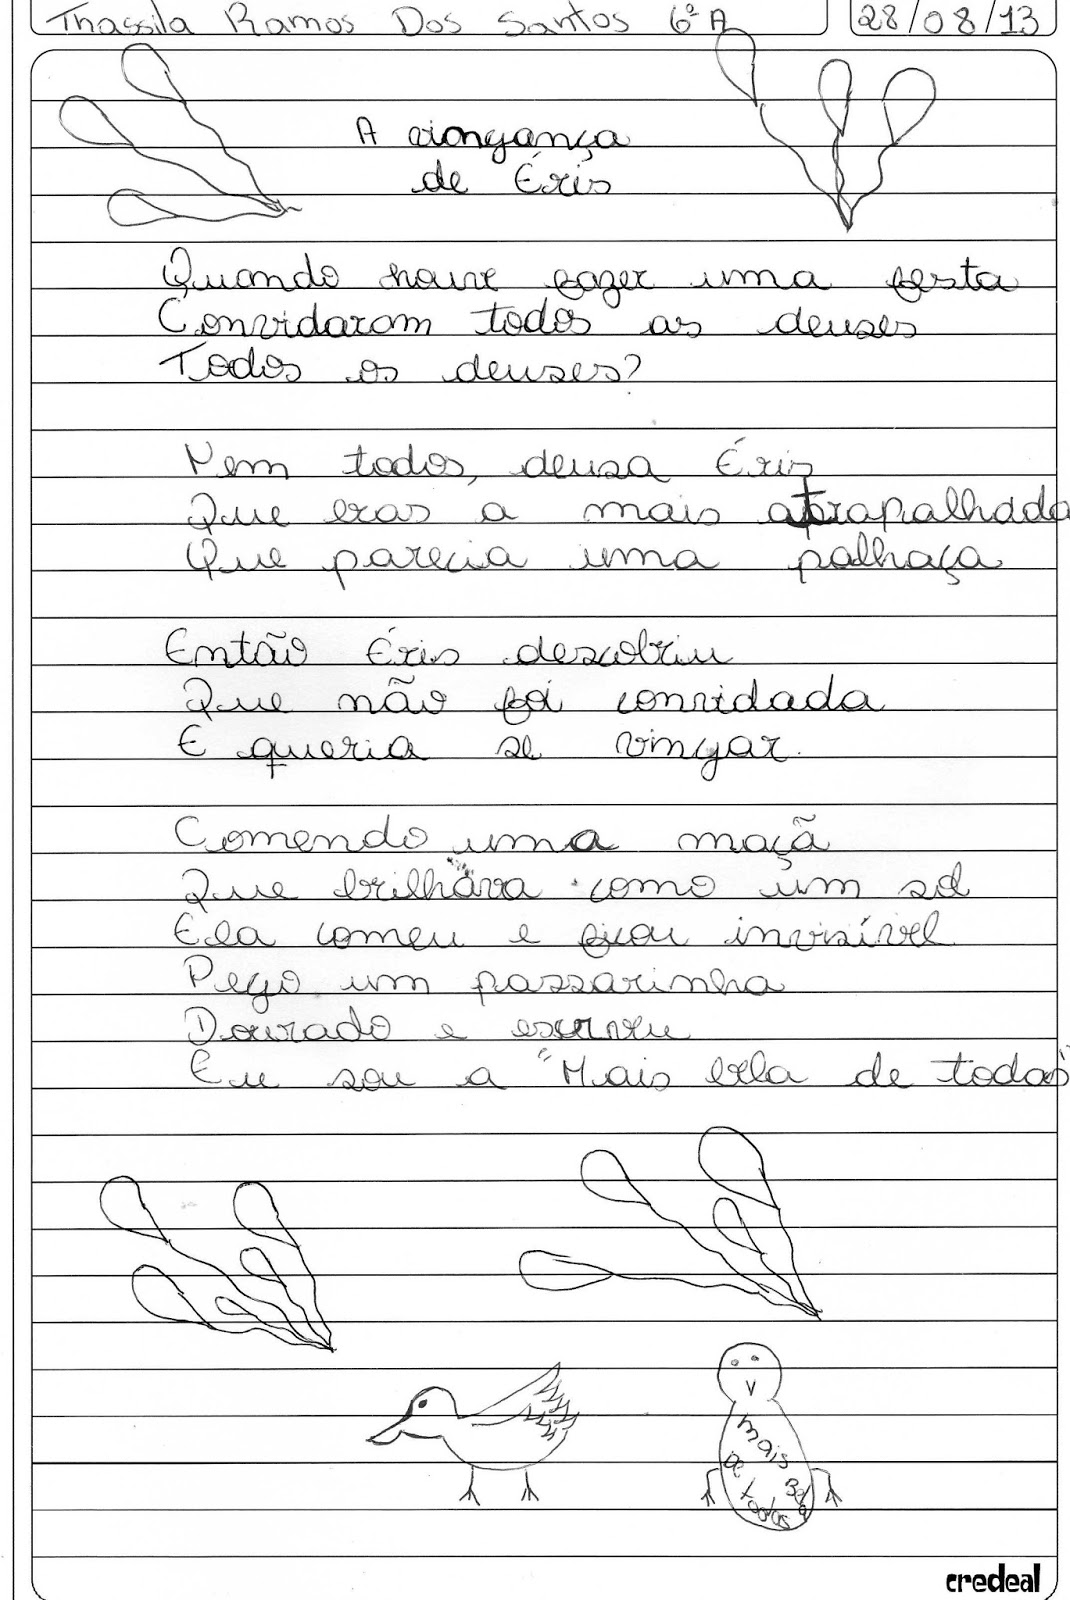 Thassila Ramos Dos Santos 6º A
28/08/13
A viongança
de Éris
Quando houve fazer uma festa
Convidaram todos as deuses
Todos os deuses?
Nem todos, deusa Éris
Que eras a mais atrapalhada
Que parecia uma palhaça
Então Éris descobriu
Que não foi convidada
E queria se vingar.
Comendo uma maçã
Que brilhava como um sol
Ela comeu e ficou invisível
Pego um passarinha
Dourado e escreveu
Eu sou a "Mais bela de todas"
mais
Bela
de
todas
credeal